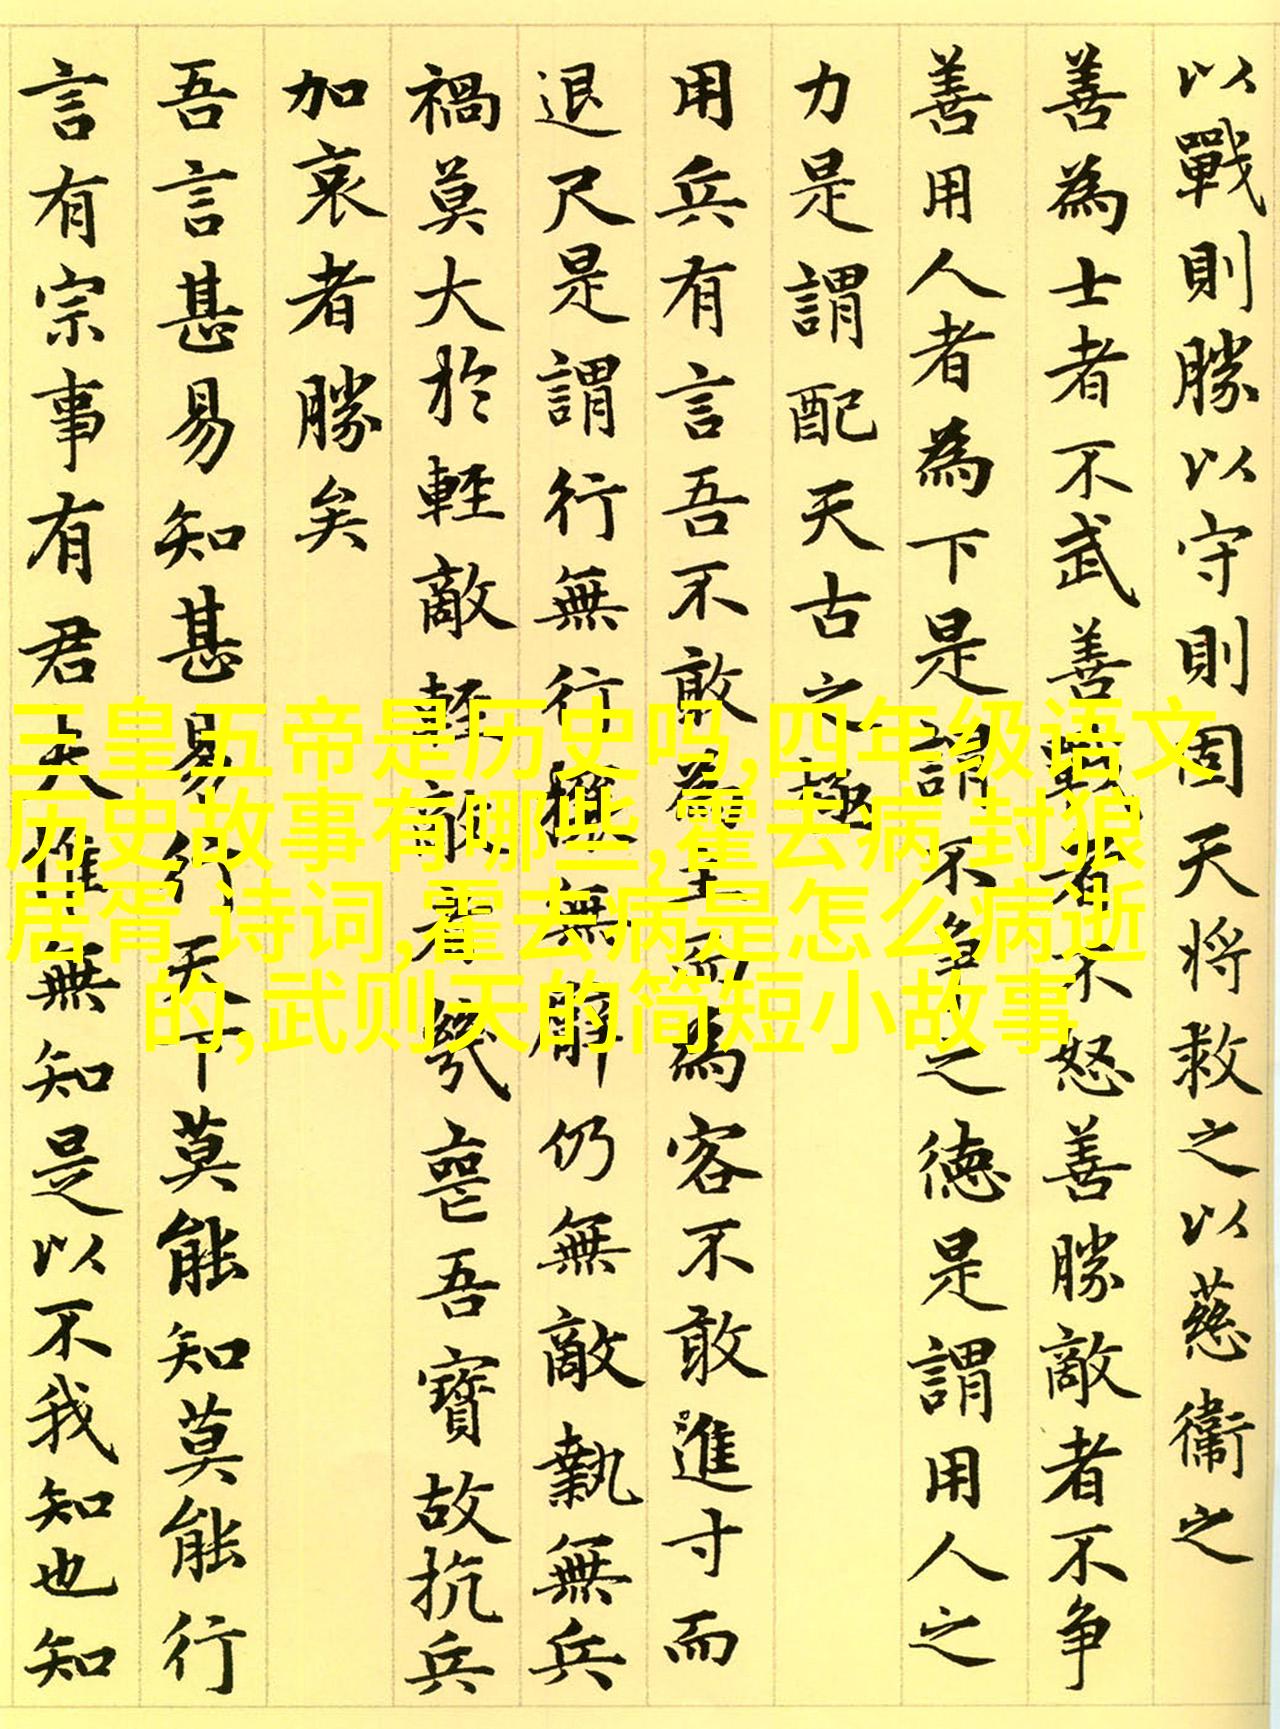 以戰則勝以守則固天將救之以慈衞之
善為士者不武善戰者不怒善勝敵者不争
善用人者為下是謂不争之德是謂用人之
力是謂配天古之極
用兵有言吾不敢為主而為客不敢進寸而
退尺是謂行無行攘無臂仍無敵執無兵
禍莫大於輕敵輕敵者幾喪吾寶故抗兵
加哀者勝矣
吾言甚易知甚易行天下莫能知莫能行
言有宗事有君夫惟無知是以不我知也知
三皇五帝是历史吗,四年级语文
历史故事有哪些,霍去病 封狼
居胥 诗词,霍去病是怎么病逝
的,武则天的简短小故事